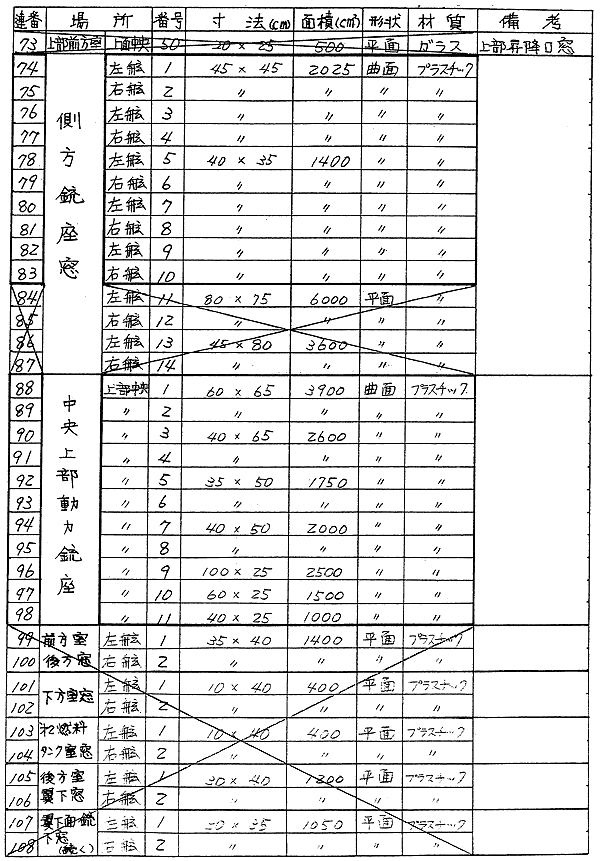 連番 場所 番号 寸法(cm) 面積(cm²) 形状 材質 備考
73 上部前方室 上面中央 50 20 × 25 500 平面 ガラス 上部昇降口窓
74 側方銃座窓 左舷 1 45 × 45 2025 曲面 プラスチック
75 右舷 2 〃 〃 〃 〃
76 左舷 3 〃 〃 〃 〃
77 右舷 4 〃 〃 〃 〃
78 左舷 5 40 × 35 1400 〃 〃
79 右舷 6 〃 〃 〃 〃
80 左舷 7 〃 〃 〃 〃
81 右舷 8 〃 〃 〃 〃
82 左舷 9 〃 〃 〃 〃
83 右舷 10 〃 〃 〃 〃
84 左舷 11 80 × 75 6000 平面 〃
85 右舷 12 〃 〃 〃 〃
86 左舷 13 45 × 80 3600 〃 〃
87 右舷 14 〃 〃 〃 〃
88 中央上部動力銃座 上部中央 1 60 × 65 3900 曲面 プラスチック
89 〃 2 〃 〃 〃 〃
90 〃 3 40 × 65 2600 〃 〃
91 〃 4 〃 〃 〃 〃
92 〃 5 35 × 50 1750 〃 〃
93 〃 6 〃 〃 〃 〃
94 〃 7 40 × 50 2000 〃 〃
95 〃 8 〃 〃 〃 〃
96 〃 9 100 × 25 2500 〃 〃
97 〃 10 60 × 25 1500 〃 〃
98 〃 11 40 × 25 1000 〃 〃
99 前方室 左舷 1 35 × 40 1400 平面 プラスチック
100 後方窓 右舷 2 〃 〃 〃 〃
101 下方室窓 左舷 1 10 × 40 400 平面 プラスチック
102 右舷 2 〃 〃 〃 〃
103 燃料 左舷 1 10 × 40 400 平面 プラスチック
104 タンク室窓 右舷 2 〃 〃 〃 〃
105 後方室 左舷 1 30 × 40 1200 平面 プラスチック
106 翼下窓 右舷 2 〃 〃 〃 〃
107 翼下面銃 左舷 1 30 × 35 1050 平面 プラスチック
108 下窓 右舷 2 〃 〃 〃 〃